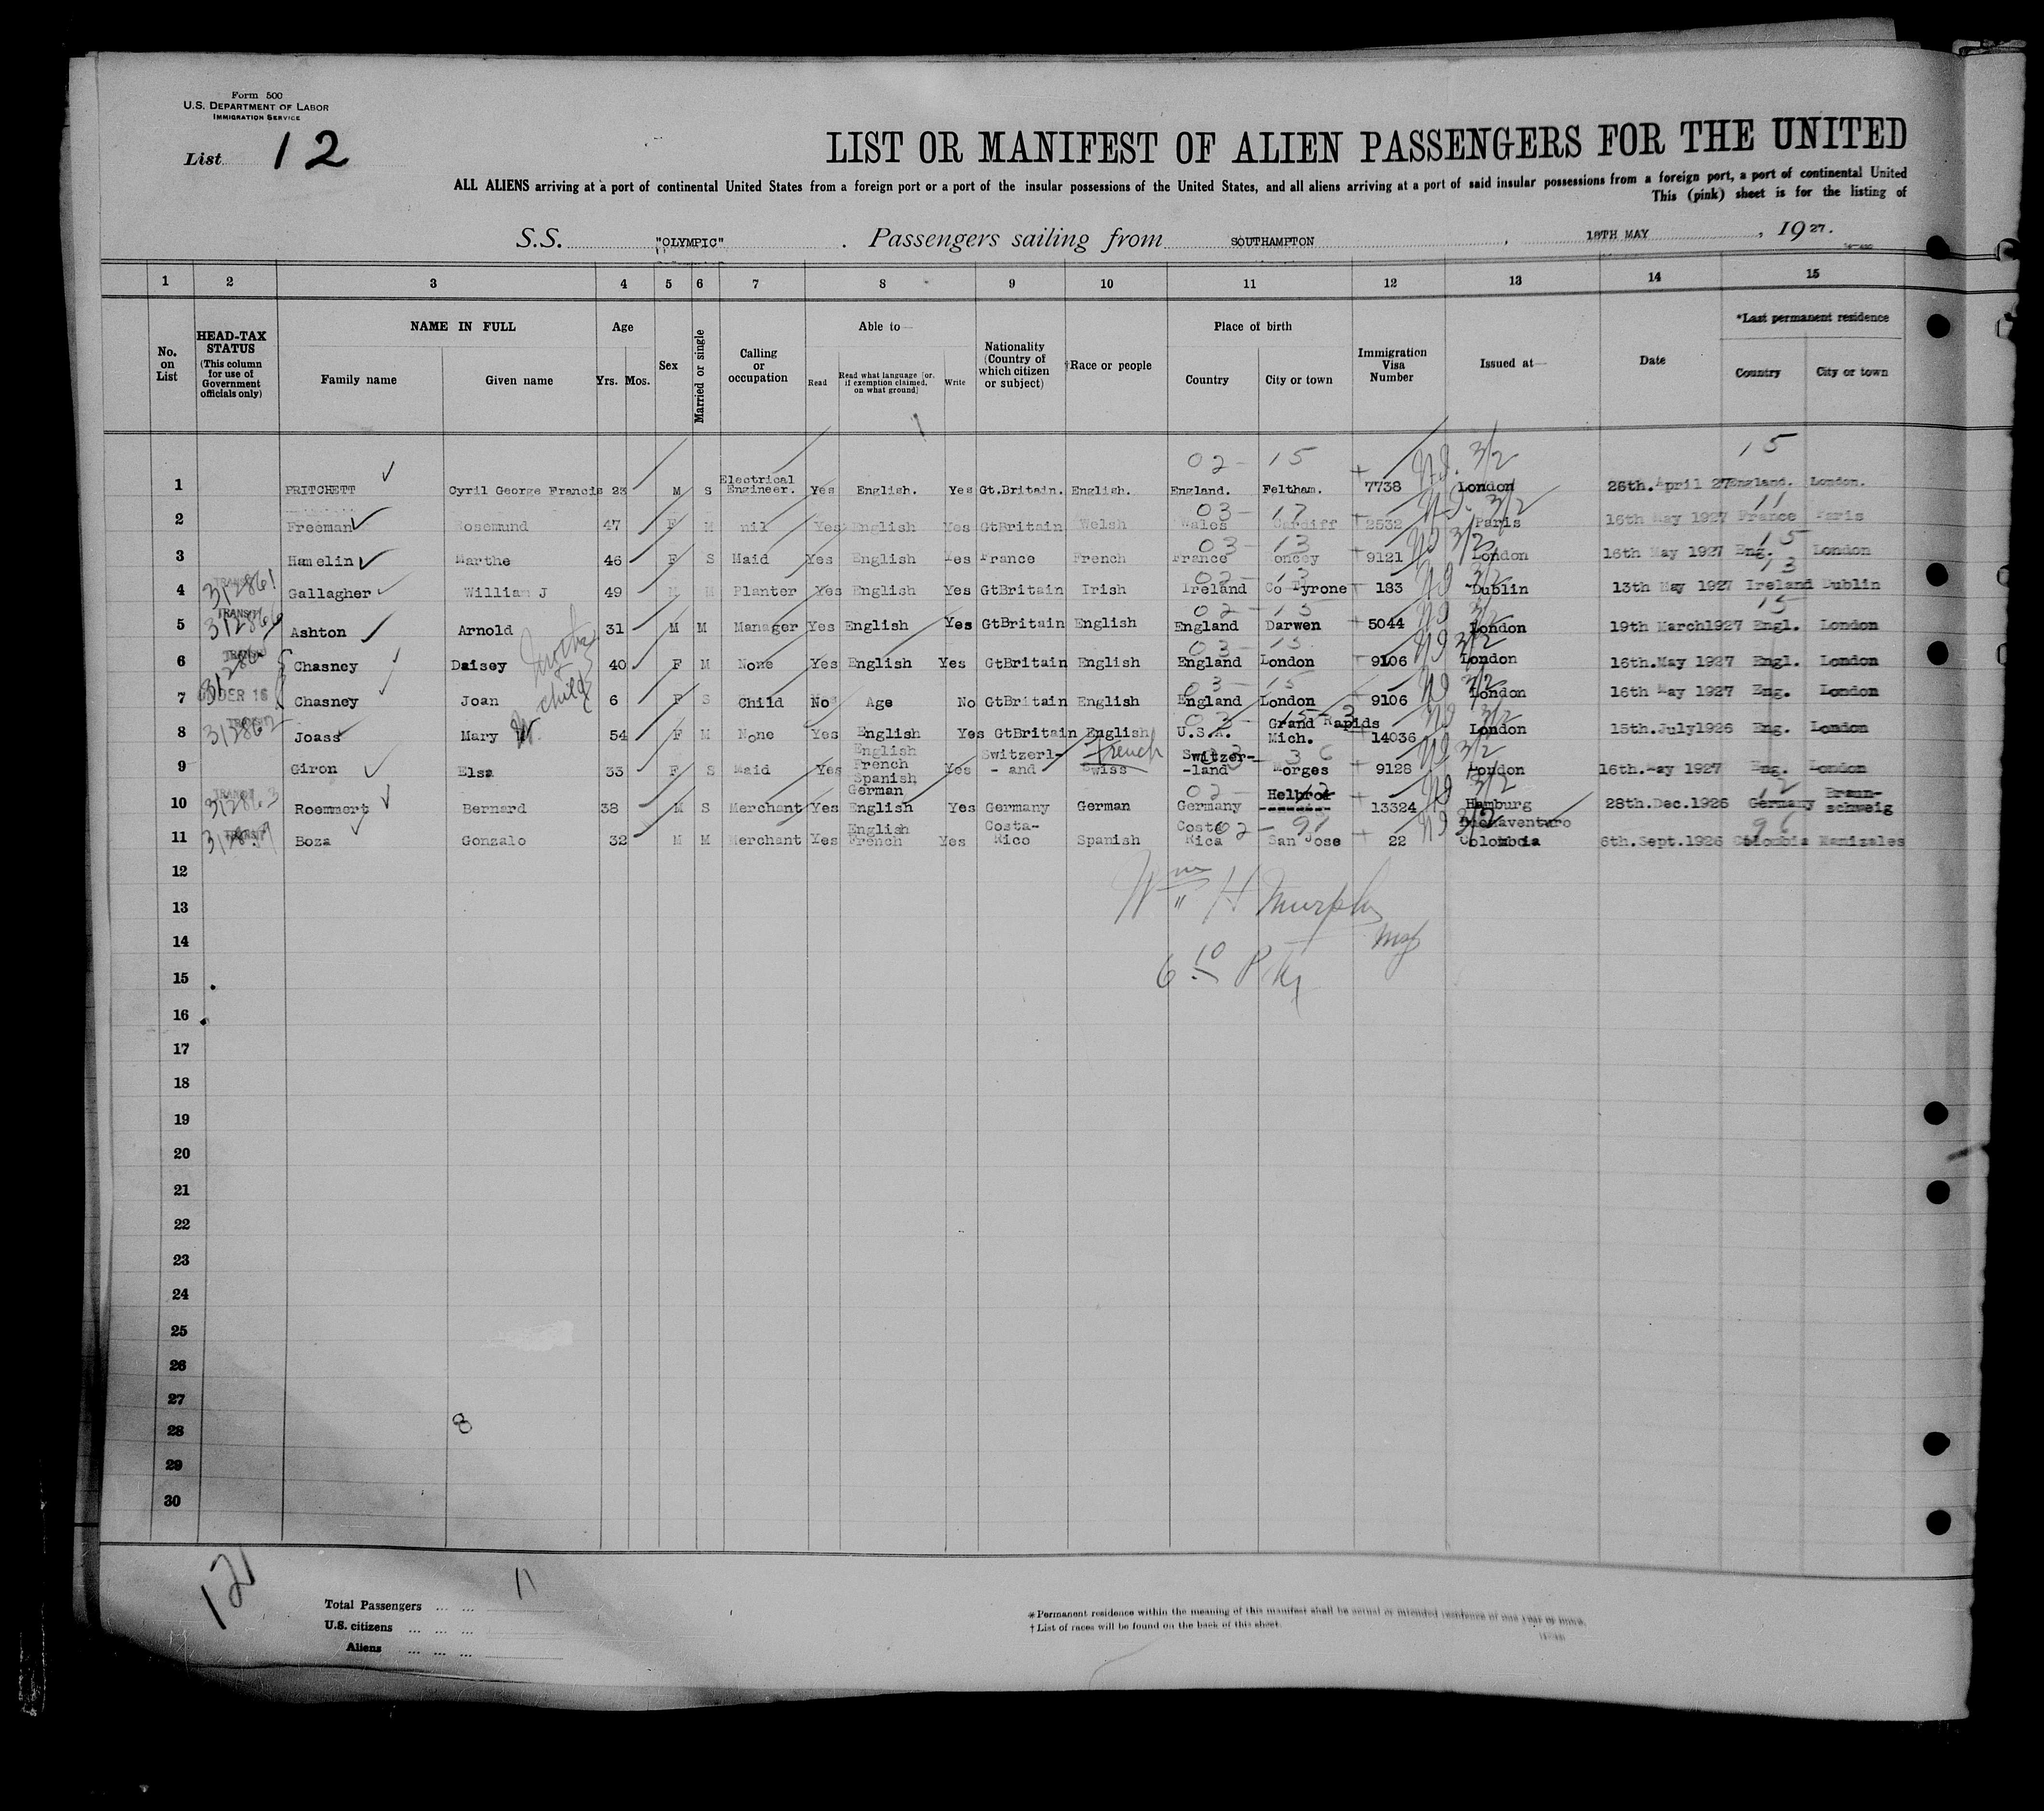 Form 500
U.S. DEPARTMENT OF LABOR
IMMIGRATION SERVICE
List 12
LIST OR MANIFEST OF ALIEN PASSENGERS FOR THE UNITED
ALL ALIENS arriving at a port of continental United States from a foreign port or a port of the insular possessions of the United States, and all aliens arriving at a port of said insular possessions from a foreign port, a port of continental United
This (pink) sheet is for the listing of
S.S. "OLYMPIC" . Passengers sailing from SOUTHAMPTON , 18TH MAY , 1927.
1 2 3 4 5 6 7 8 9 10 11 12 13 14 15
No. on List
HEAD-TAX STATUS
(This column for use of Government officials only)
NAME IN FULL
Family name Given name
Age
Yrs. Mos.
Sex
Married or single
Calling or occupation
Able to—
Read Read what language [or, if exemption claimed, on what ground] Write
Nationality (Country of which citizen or subject)
†Race or people
Place of birth
Country City or town
Immigration Visa Number
Issued at—
Date
*Last permanent residence
Country City or town
02- 15 3/2 15
1 PRITCHETT Cyril George Francis 23 M S Electrical Engineer. Yes English. Yes Gt.Britain. English. England. Feltham. 7738 London April 27 England. London.
03- 17 3/2 11
2 Freeman Rosemund 47 F M nil Yes English Yes GtBritain Welsh Wales Cardiff 2532 Paris 16th May 1927 France Paris
03- 13 3/2 15
3 Hamelin Marthe 46 F S Maid Yes English Yes France French France 9121 London 16th May 1927 Eng. London
02- 13 3/2 13
4 312861 TRANSIT Gallagher William J 49 M M Planter Yes English Yes GtBritain Irish Ireland Co Tyrone 183 Dublin 13th May 1927 Ireland Dublin
02- 15 3/2 15
5 312866 TRANSIT Ashton Arnold 31 M M Manager Yes English Yes GtBritain English England Darwen 5044 London 19th March1927 Engl. London
03- 15 3/2
6 TRANSIT Chasney Daisey 40 F M None Yes English Yes GtBritain English England London 9106 London 16th.May 1927 Engl. London
child
03- 15 3/2
7 UNDER 16 Chasney Joan 6 F S Child No Age No GtBritain English England London 9106 London 16th May 1927 Eng. London
3/2
8 312862 TRANSIT Joass Mary 54 F M None Yes English Yes GtBritain English U.S.A. Grand Rapids Mich. 14036 London 15th.July1926 Eng. London
3/2
9 Giron Elsa 33 F S Maid Yes English French Spanish German Yes Switzerl- -and Swiss French Switzer- -land Morges 9128 London 16th.May 1927 Eng. London
02- 3/2 12
10 312863 TRANSIT Roemmert Bernard 38 M S Merchant Yes English Yes Germany German Germany 13324 Hamburg 28th.Dec.1926 Germany Braun- schweig
02- 91 3/2 96
11 TRANSIT Boza Gonzalo 32 M M Merchant Yes English French Yes Costa- Rico Spanish Costa Rica San Jose 22 Buenaventuro Colombia 6th.Sept.1926 Colombia Manizales
12
Wm H Murphy
13
14
15
16
17
18
19
20
21
22
23
24
25
26
27
28 8
29
30
12
Total Passengers ... ... 11
U.S. citizens ... ... ...
Aliens ... ... ...
* Permanent residence within the meaning of this manifest shall be actual or intended residence of one year or more.
† List of races will be found on the back of this sheet.